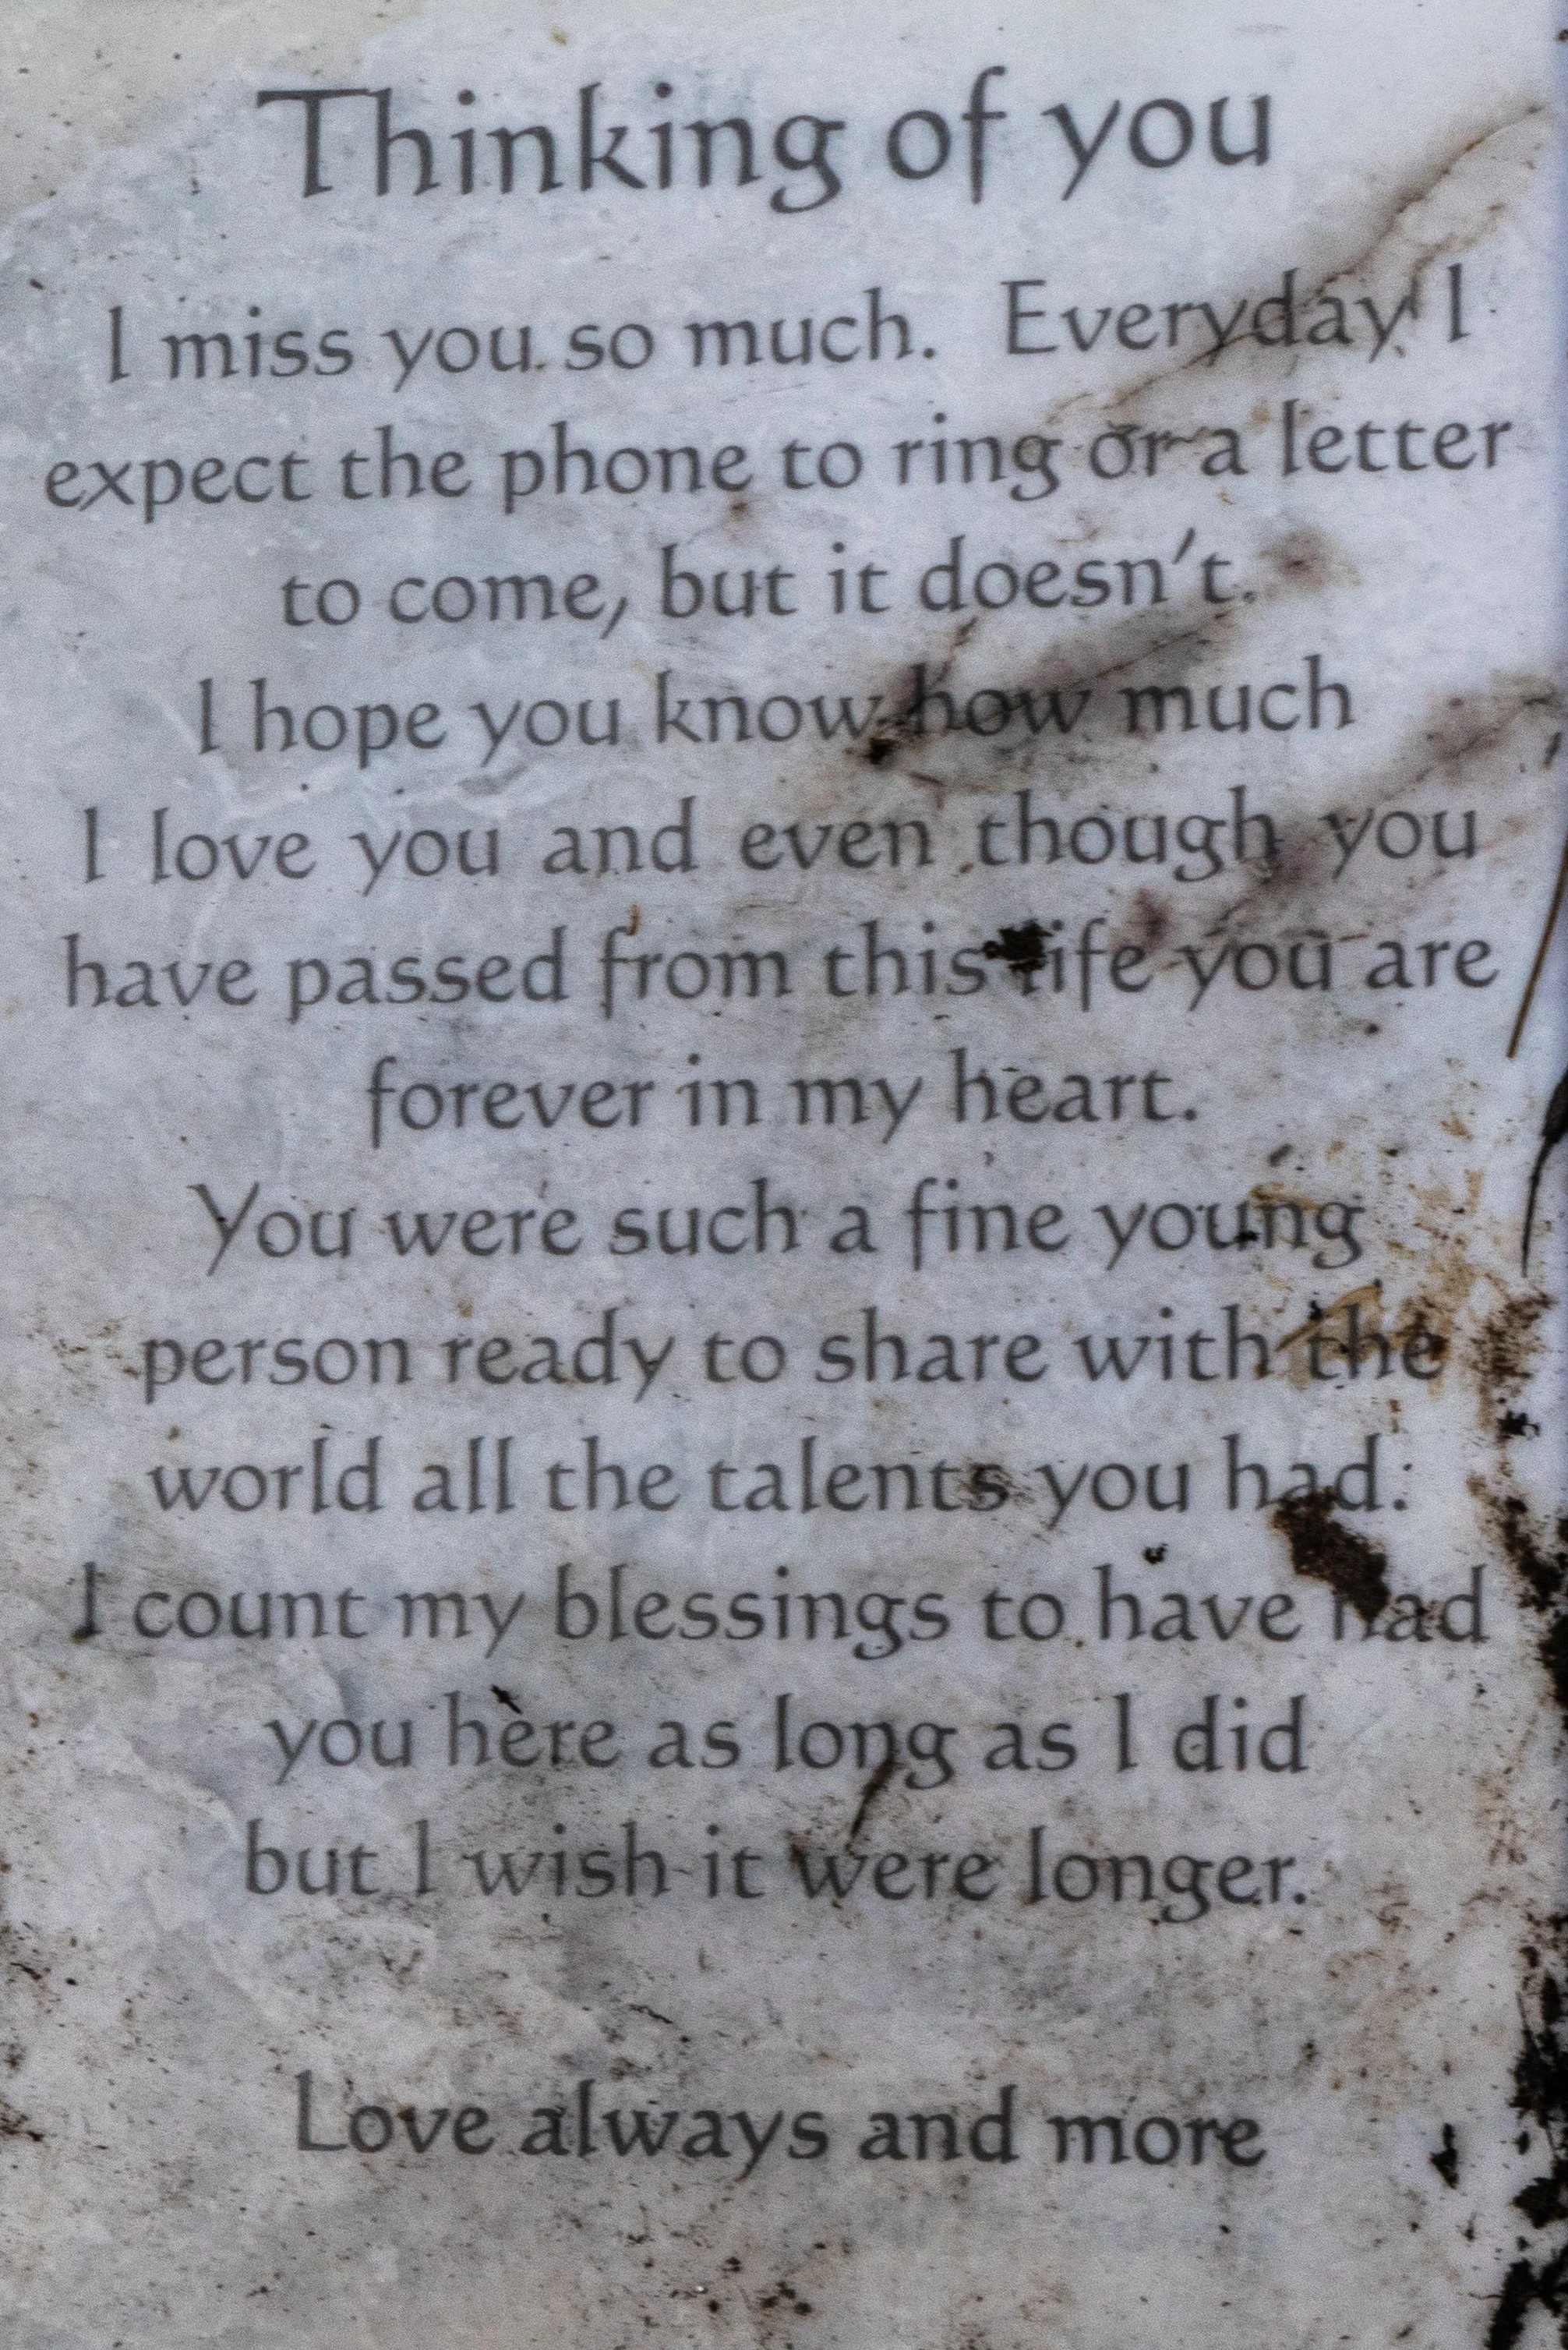 Thinking of you
I miss you so much. Everyday I
expect the phone to ring or a letter
to come, but it doesn't.
I hope you know how much
I love you and even though you
have passed from this life you are
forever in my heart.
You were such a fine young
person ready to share with the
world all the talents you had.
I count my blessings to have had
you here as long as I did
but I wish it were longer.
Love always and more